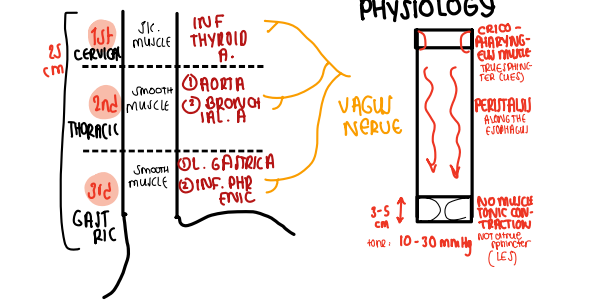 PHYSIOLOGY
25
cm
1st
CERVICAL
SK.
MUSCLE
INF
THYROID
A.
2nd
THORACIC
SMOOTH
MUSCLE
① AORTA
② BRONCH
IAL. A
3rd
GAST
RIC
SMOOTH
MUSCLE
① L. GASTRICA
② INF. PHR
ENIC
VAGUS
NERVE
CRICO-
PHARYNG-
EUS MUSCLE
TRUE SPHINC-
TER (UES)
PERISTALSIS
ALONG THE
ESOPHAGUS
3-5
cm
NO MUSCLE
TONIC CON-
TRACTION
NOT a true
sphincter
(LES)
tone: 10-30 mmHg